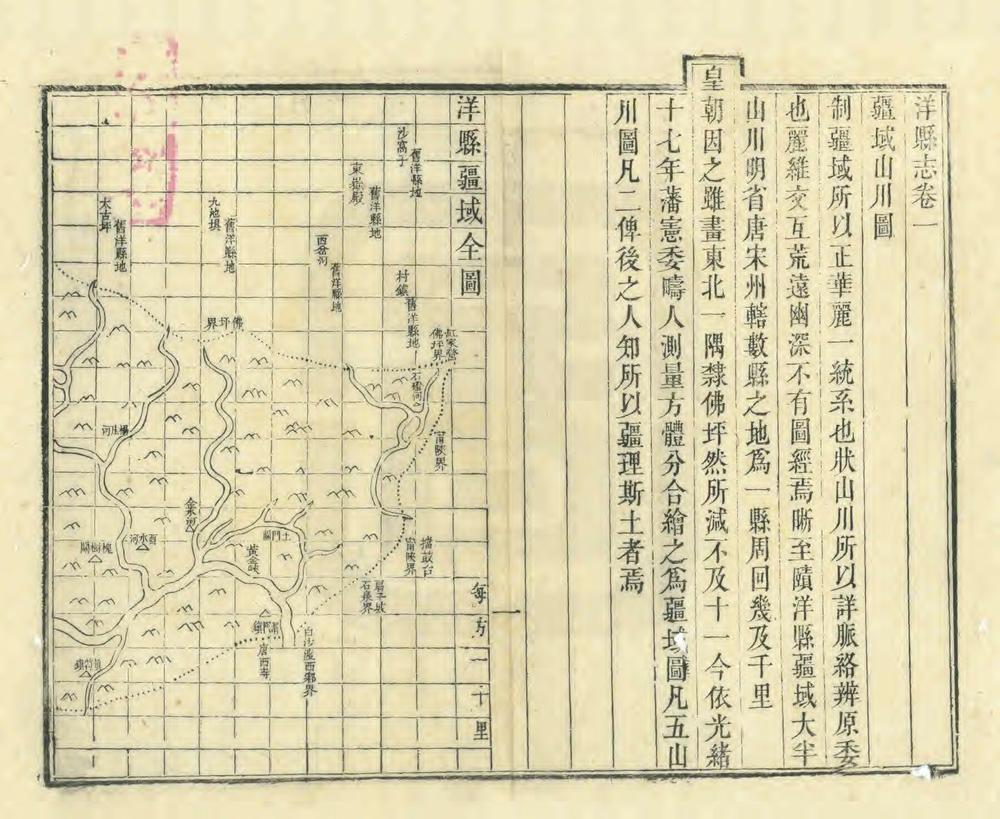 洋縣志卷一
疆域山川圖
制疆域所以正華麗一統系也狀山川所以詳脈絡辨原委
也麗維交互荒遠幽深不有圖經焉晰至賾洋縣疆域大半
山川明省唐宋州轄數縣之地爲一縣周回幾及千里
皇朝因之雖畫東北一隅隸佛坪然所減不及十一今依光緒
十七年藩憲委疇人測量方體分合繪之爲疆域圖凡五山
川圖凡二俾後之人知所以疆理斯土者焉
一
洋縣疆域全圖
每方一十里
沙窩子
舊洋縣地
東嶽殿
舊洋縣地
西岔河
舊洋縣地
村鎮
舊洋縣地
九池垻
舊洋縣地
太古坪
舊洋縣地
佛坪界
佛坪界
甯陝界
擂鼓台
甯陝界
石泉界
白沙渡西鄉界
唐西寺
土門關
黃金峽
金水河
酉水河
槐樹關